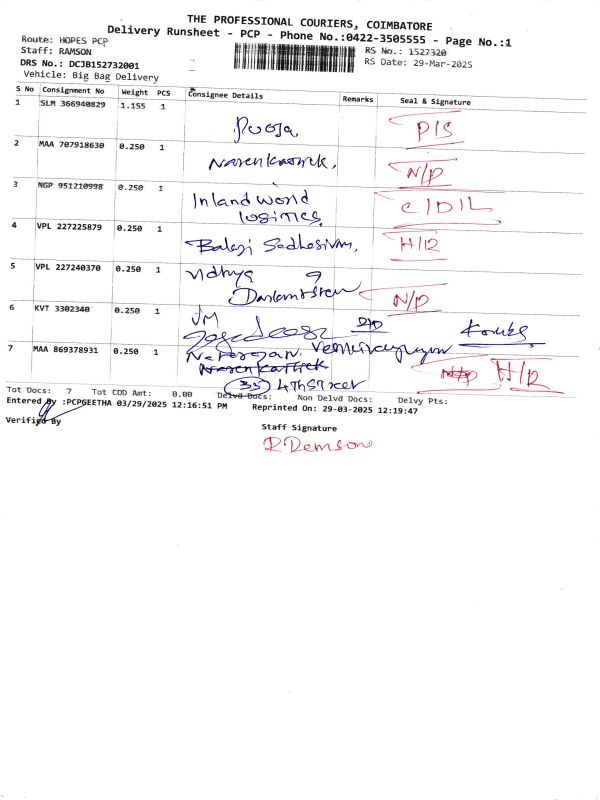 THE PROFESSIONAL COURIERS, COIMBATORE
Delivery Runsheet - PCP - Phone No.:0422-3505555 - Page No.:1
Route: HOPES PCP
RS No.: 1527320
Staff: RAMSON
RS Date: 29-Mar-2025
DRS No.: DCJB152732001
Vehicle: Big Bag Delivery
S No Consignment No Weight PCS Consignee Details Remarks Seal & Signature
1 SLM 366940829 1.155 1 Pooja P/S
2 MAA 707918630 0.250 1 Narenkarthik. N/D
3 NGP 951210998 0.250 1 Inland World
logistics. C/D/L
4 VPL 227225879 0.250 1 Balaji Sadhasivam, H/R
5 VPL 227240370 0.250 1 Vidhya
N/D
6 KVT 3302340 0.250 1 VM
7 MAA 869378931 0.250 1 Narenkarthik H/R
(35) 4th Street
Tot Docs: 7 Tot COD Amt: 0.00 Delvd Docs: Non Delvd Docs: Delvy Pts:
Entered By :PCPGEETHA 03/29/2025 12:16:51 PM Reprinted On: 29-03-2025 12:19:47
Verified By
Staff Signature
R Ramson